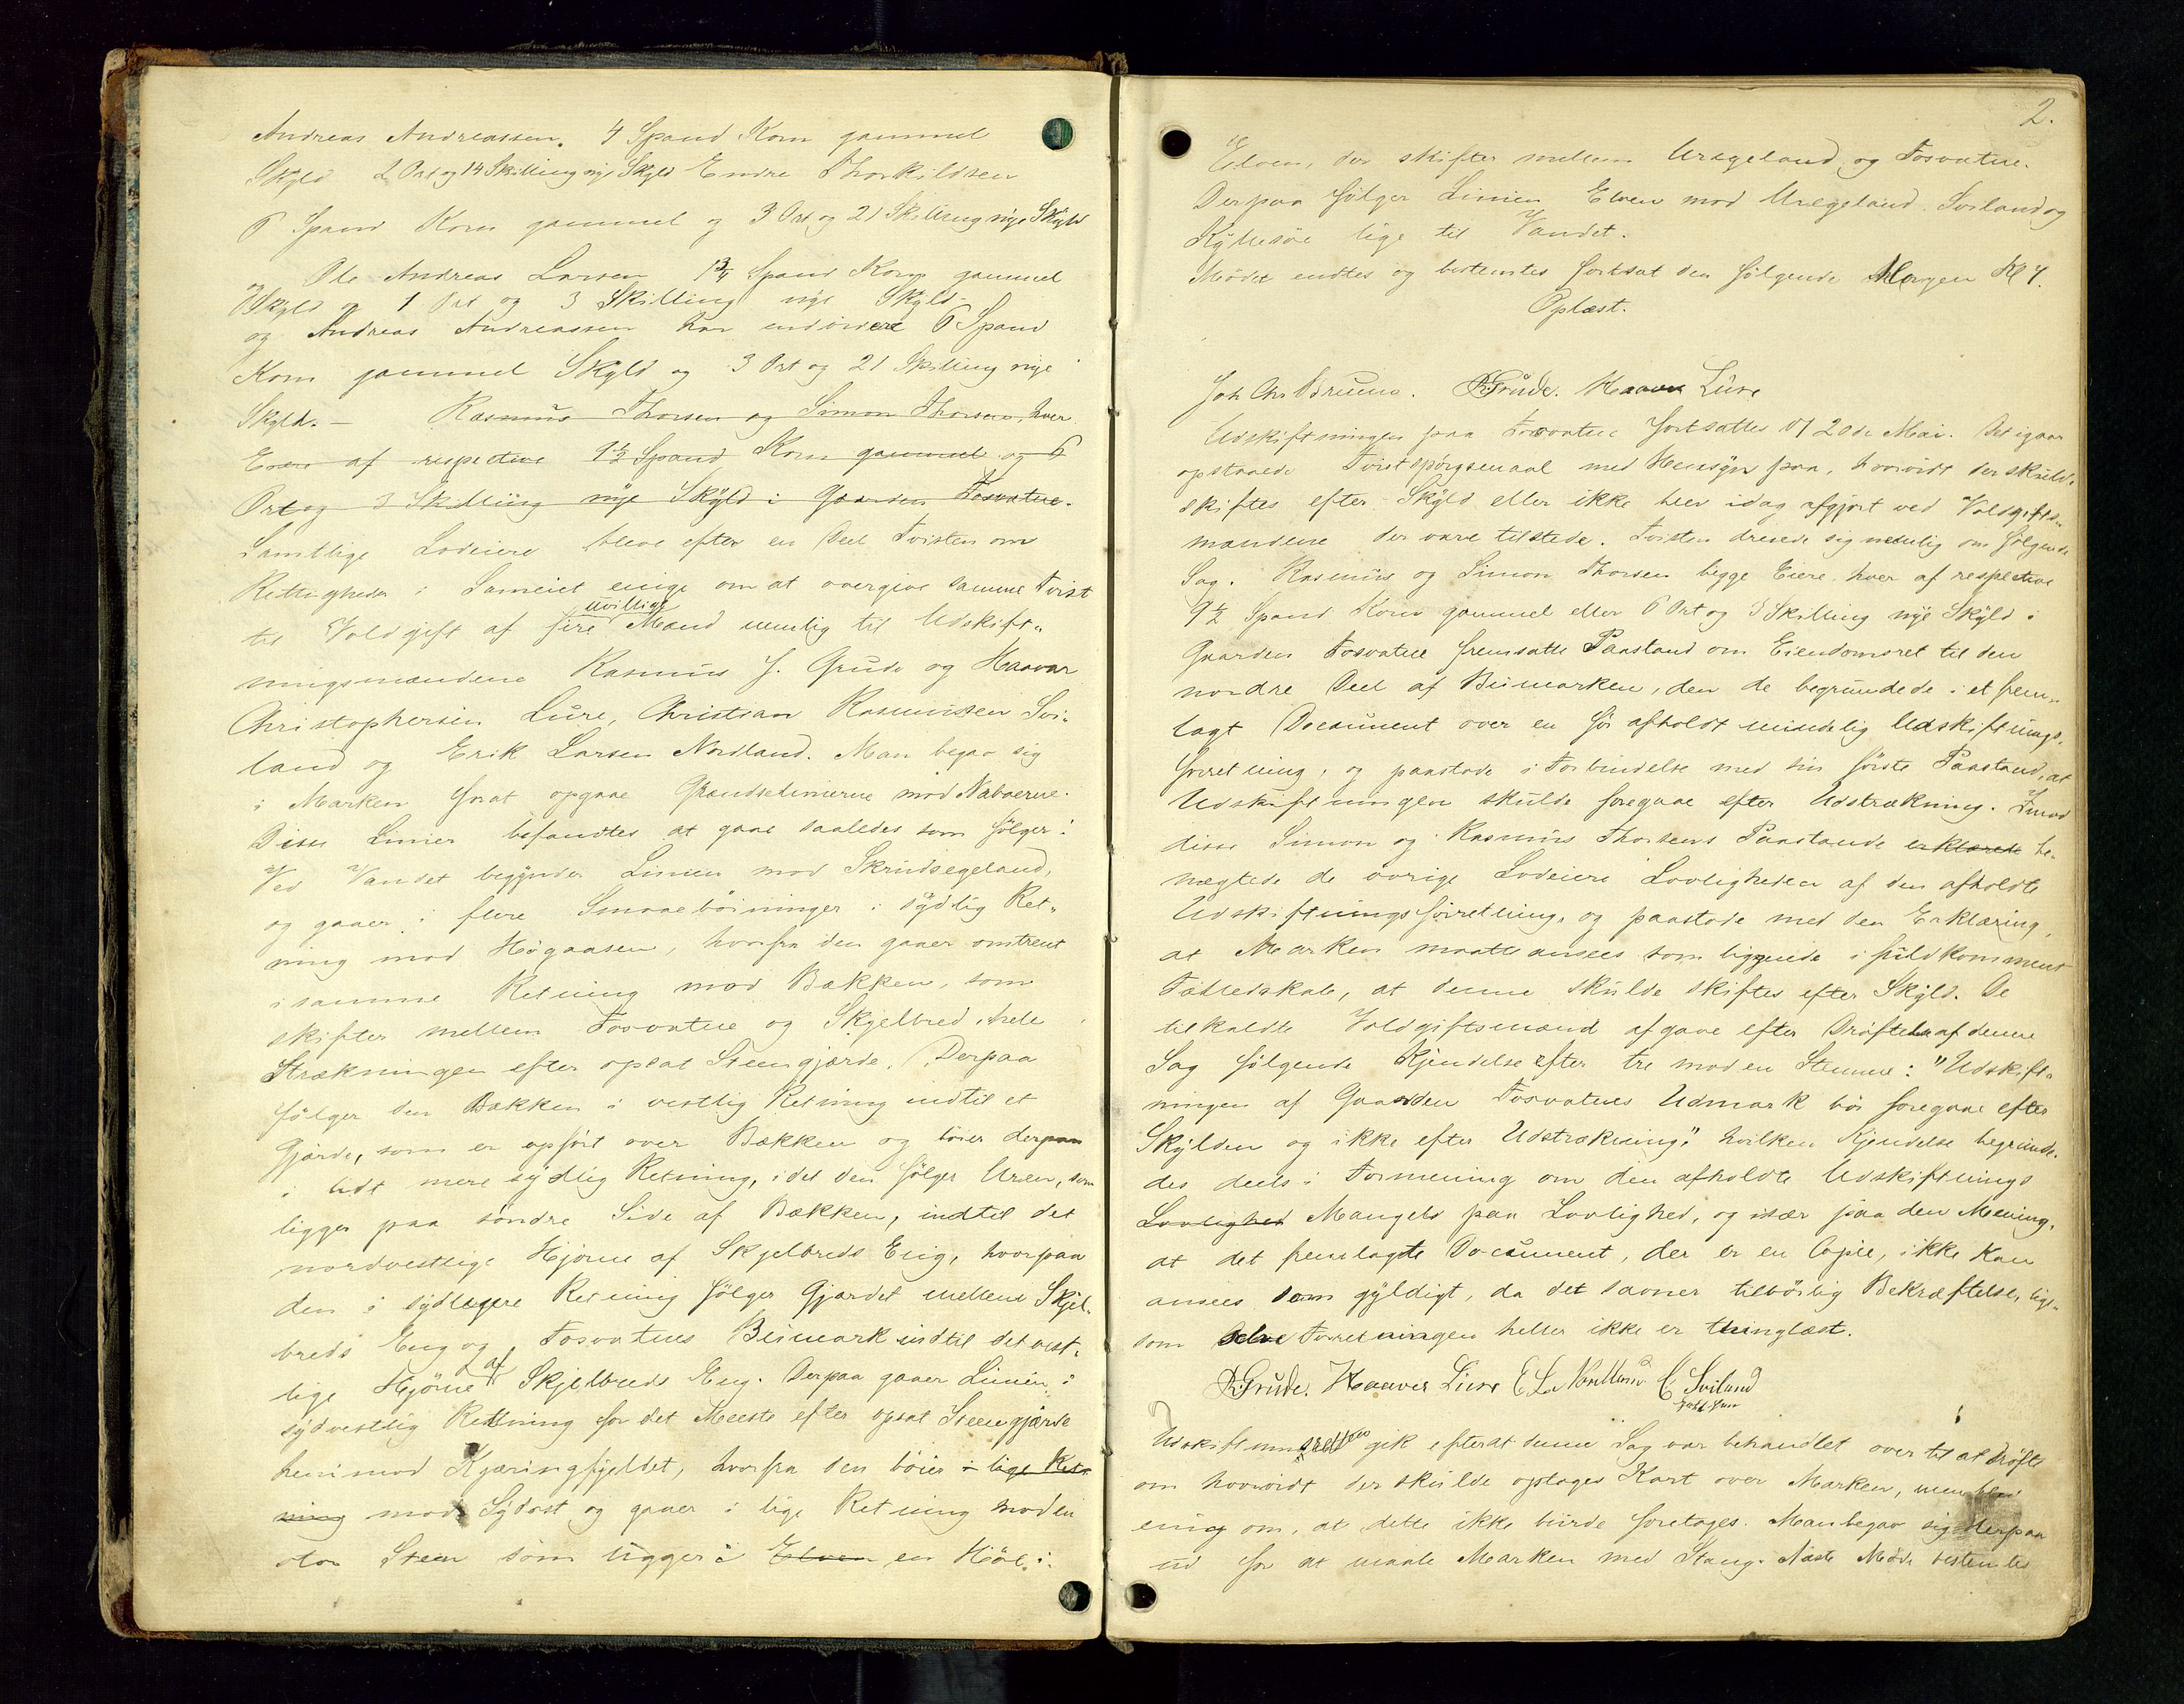 Andreas Andreassen. 4 Spand Korn gammel
Skyld 2 Ort og 14 Skilling nye Skyld Endre Thorkildsen
6 Spand Korn gammel og 3 Ort og 21 Skilling nye Skyld
Ole Andreas Larsen 1 3/4 Spand Korn gammel
Skyld og 1 Ort og 3 Skilling nye Skyld.
og Andreas Andreassen har endvidere 6 Spand
Korn gammel Skyld og 3 Ort og 21 Skilling nye
Skyld. — Rasmus Thorsen og Simon Thorsen, hver
Eiere af respective 9½ Spand Korn gammel og 6
Ort og 3 Skilling nye Skyld i Gaarden Fosvatne.
Samtlige Lodeiere bleve efter en Deel Tvisten om
Rettigheder i Sameiet enige om at overgive samme Tvist
til Voldgift af fire uvillige Mænd nemlig til Udskift„
ningsmændene Rasmus J. Grude og Haavar
Christophersen Lure, Christian Rasmussen Svi„
land og Erik Larsen Nordland. Man begav sig
i Marken forat opgaae Grændselinierne mod Naboerne.
Disse Linier befandtes at gaae saaledes som følger:
Ved Vandet begynder Linien mod Skrudsegeland,
og gaaer i flere Smaaebøininger i sydlig Ret„
ning mod Høgaasen, hvorfra den gaaer omtrent
i samme Retning mod Bækken, som
skifter mellem Fosvatne og Skjelbred, hele
Strækningen efter opsat Steengjærde. Derpaa
følger den Bækken i vestlig Retning indtil et
Gjærde, som er opført over Bækken og bøier derpaa
i lidt mere sydlig Retning, idet den følger Uren, som
ligger paa søndre Side af Bækken, indtil det
nordvestlige Hjørne af Skjelbreds Eng, hvorpaa
den i sydligere Retning følger Gjærdet mellem Skjel„
breds Eng og Fosvatnes Beimark indtil det vest„
lige Hjørne af Skjelbreds Eng. Derpaa gaaer Linien i
sydvestlig Retning for det Meeste efter opsat Steengjærde
henimod Kjæringfjeldet, hvorfra den bøier i lige Ret„
ning mod Sydost og gaaer i lige Retning mod en
stor Steen som ligger i Elven en Høl i
2.
Elven, der skifter mellem Uregeland og Fosvatne.
Derpaa følger Linien Elven mod Uregeland, Sviland og
Kyllesøe lige til Vandet.
Mødet endtes og bestemtes fortsat den følgende Morgen Kl 7.
Oplæst.
Joh Chr Bruun. R Grude. Haavar Lure
Udskiftningen paa Fosvatne fortsattes d 20de Mai. Det igaar
opstaaede Tvistspørgsmaal med Hensyn paa, hvorvidt der skulde
skiftes efter Skyld eller ikke blev idag afgjort ved Voldgifts„
mændene der vare tilstede. Tvisten dreiede sig nemlig om følgende
Sag. Rasmus og Simon Thorsen begge Eiere hver af respective
9½ Spand Korn gammel eller 6 Ort og 3 Skilling nye Skyld i
Gaarden Fosvatne fremsatte Paastand om Eiendomsret til den
nordre Deel af Beimarken, den de begrundede i et frem„
lagt Document over en før afholdt mindelig Udskiftnings„
forretning, og paastode i Forbindelse med sin første Paastand, at
Udskiftningen skulde foregaae efter Udstrækning. Imod
disse Simon og Rasmus Thorsens Paastande erklærede be„
nægtede de øvrige Lodeiere Lovligheden af den afholdte
Udskiftningsforretning, og paastode med den Erklæring,
at Marken maatte ansees som liggende i fuldkomment
Fælledskab, at denne skulde skiftes efter Skyld. De
tilkaldte Voldgiftsmænd afgave efter Drøftelse af denne
Sag følgende Kjendelse efter tre mod en Stemme: "Udskift„
ningen af Gaarden Fosvatnes Udmark bør foregaae efter
Skylden og ikke efter Udstrækning," hvilken Kjendelse begrunde„
des deels i Formening om den afholdte Udskiftnings
Lovlighed Mangel paa Lovlighed, og især paa den Mening,
at det fremlagte Document, der er en Copie, ikke kan
ansees som gyldigt, da det savner tilbørlig Bekræftelse, lige„
som selve Forretningen heller ikke er thinglæst.
R Grude. Haaver Lure E L Nordland C Sviland
Udskiftningsretten gik efterat denne Sag var behandlet over til at drøfte
om hvorvidt der skulde optages Kart over Marken, men blev
enig om, at dette ikke burde foretages. Man begav sig derpaa
ud for at maale Marken med Stang. Næste Møde bestemtes